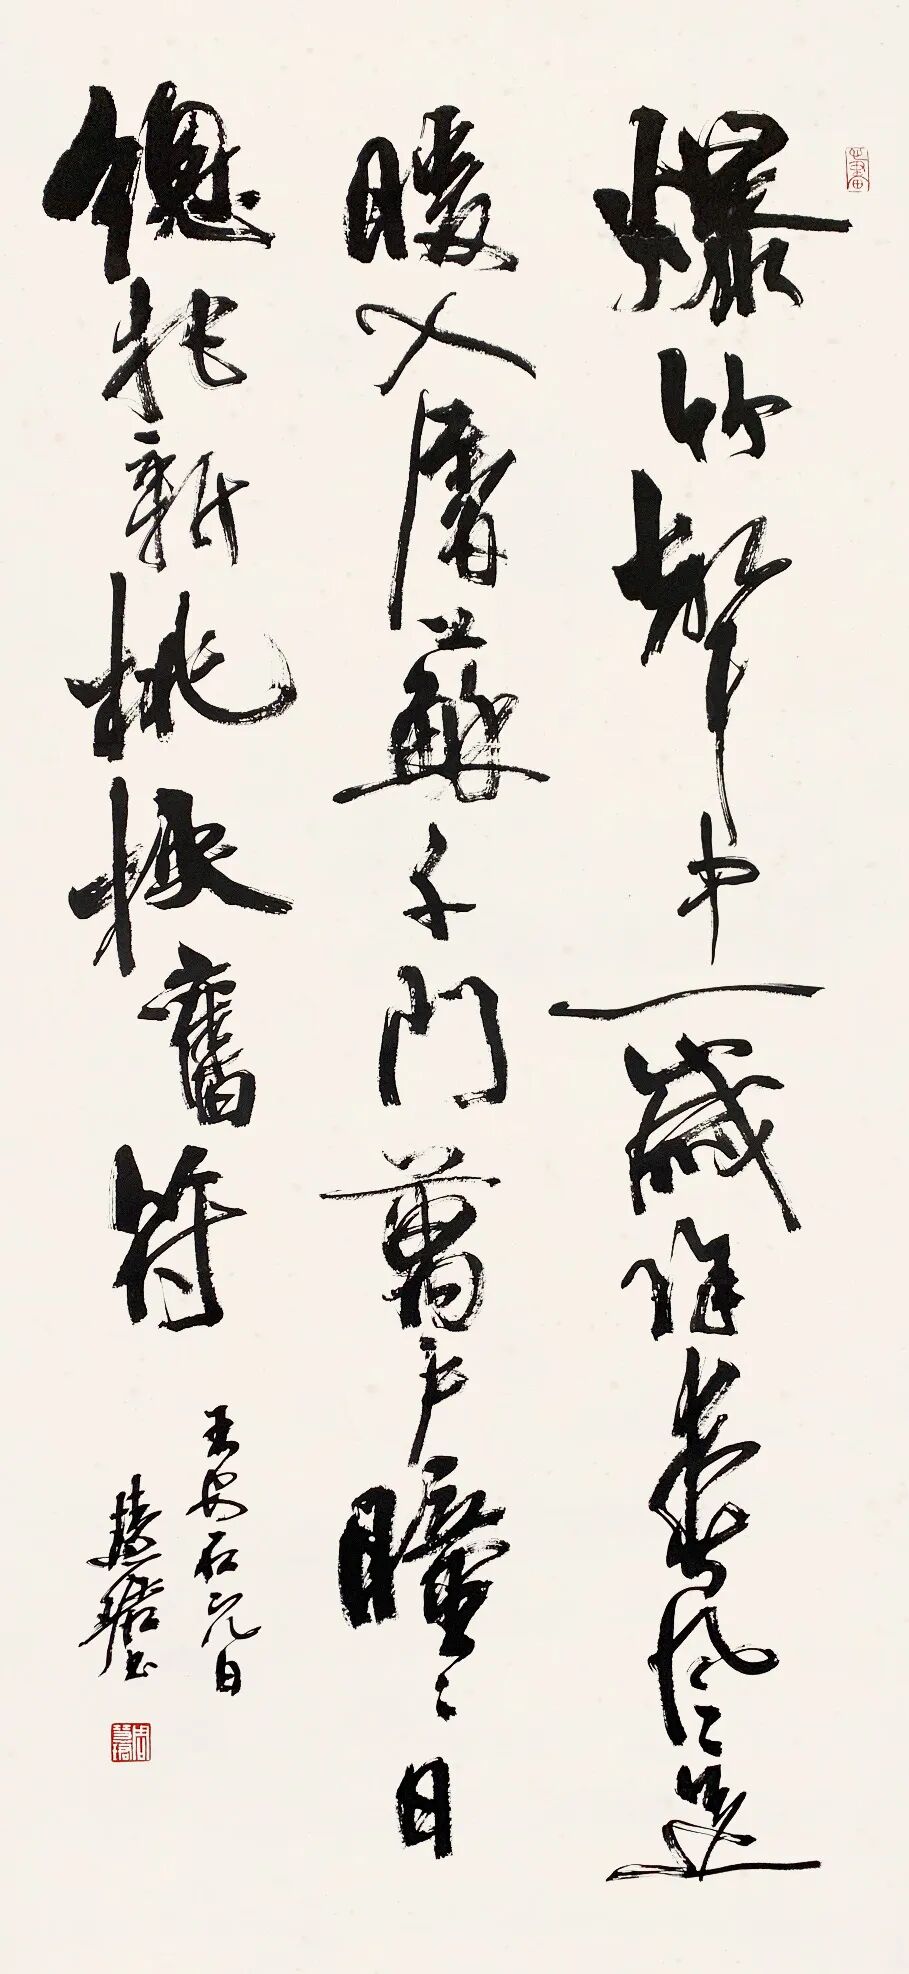 爆竹聲中一歲除春風送
暖入屠蘇千門萬戶曈〻日
總把新桃換舊符
王安石元日
慧珺書